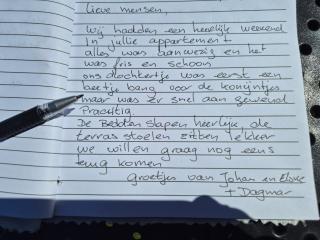 lieve mensen,
Wij hadden een heerlijk weekend
In jullie appartement
alles was aanwezig en het
was fris en schoon
ons dochtertje was eerst een
beetje bang voor de konijntjes
maar was er snel aan gewend
Prachtig.
De Bedden slapen heerlijk, de
terras stoelen zitten lekker
we willen graag nog eens
terug komen
Groetjes van Johan en
+ Dagmar